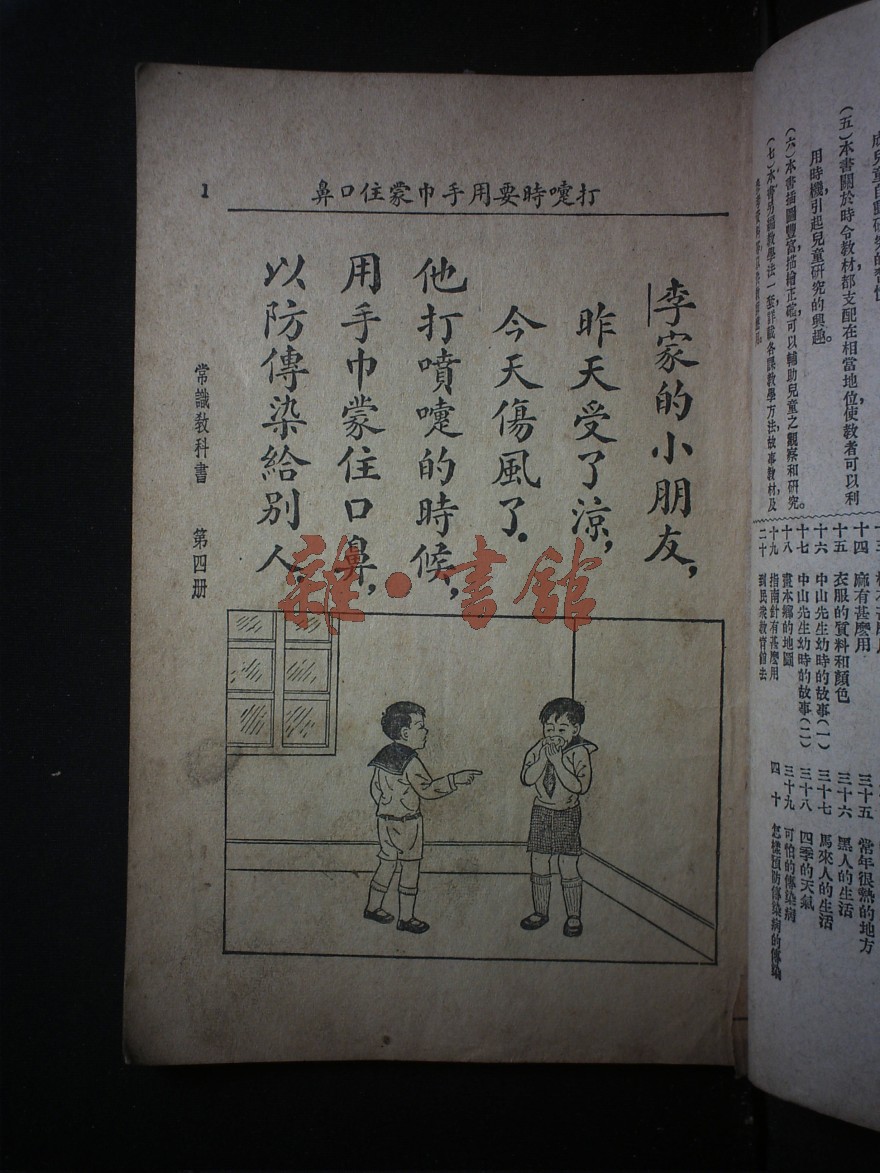 打嚏時要用手巾蒙住口鼻
1
李家的小朋友，
昨天受了涼，
今天傷風了。
他打噴嚏的時候，
用手巾蒙住口鼻，
以防傳染給別人。
常識教科書 第四册
雜·書館
(五)本書關於時令教材，都支配在相當地位，使教者可以利
用時機，引起兒童研究的興趣。
(六)本書插圖豐富，描繪正確，可以輔助兒童之觀察和研究。
(七)本書另編教學法一套，詳載各課教學方法，故事教材，及
十四 麻有甚麽用
十五 衣服的質料和顏色
十六 中山先生幼時的故事(一)
十七 中山先生幼時的故事(二)
十八 畫本鄉的地圖
十九 指南針有甚麽用
二十 到民衆教育館去
三十五 常年很熱的地方
三十六 黑人的生活
三十七 馬來人的生活
三十八 四季的天氣
三十九 可怕的傳染病
四十 怎樣預防傳染病的傳染